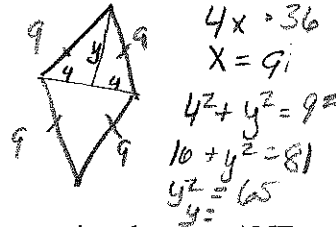 9
9
y
4
4
9
9
4x = 36
X = 9i
4² + y² = 9²
16 + y² = 81
y² = 65
y =